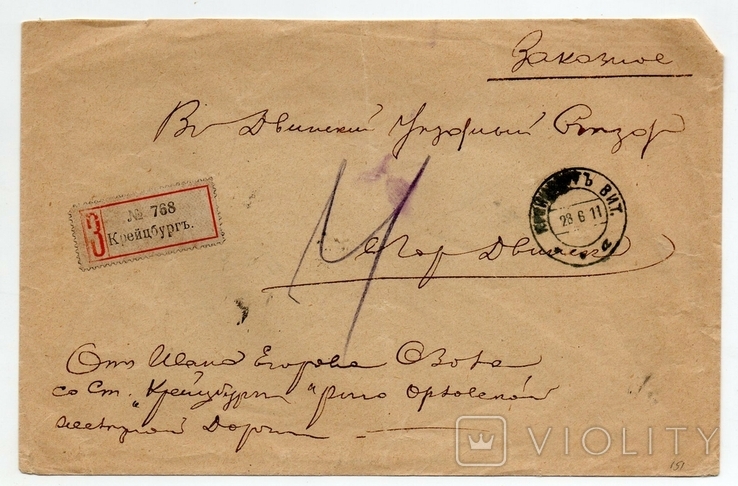 Заказное
Въ Двинский Уездный
З
№ 768
Крейцбургъ.
КРЕЙЦБУРГЪ ВИТ.
28 6 11
Гор Двинскъ
От Ивана Егорова
со Ст. "Крейцбург" Риго Орловской
железной Дороги
VIOLITY
151